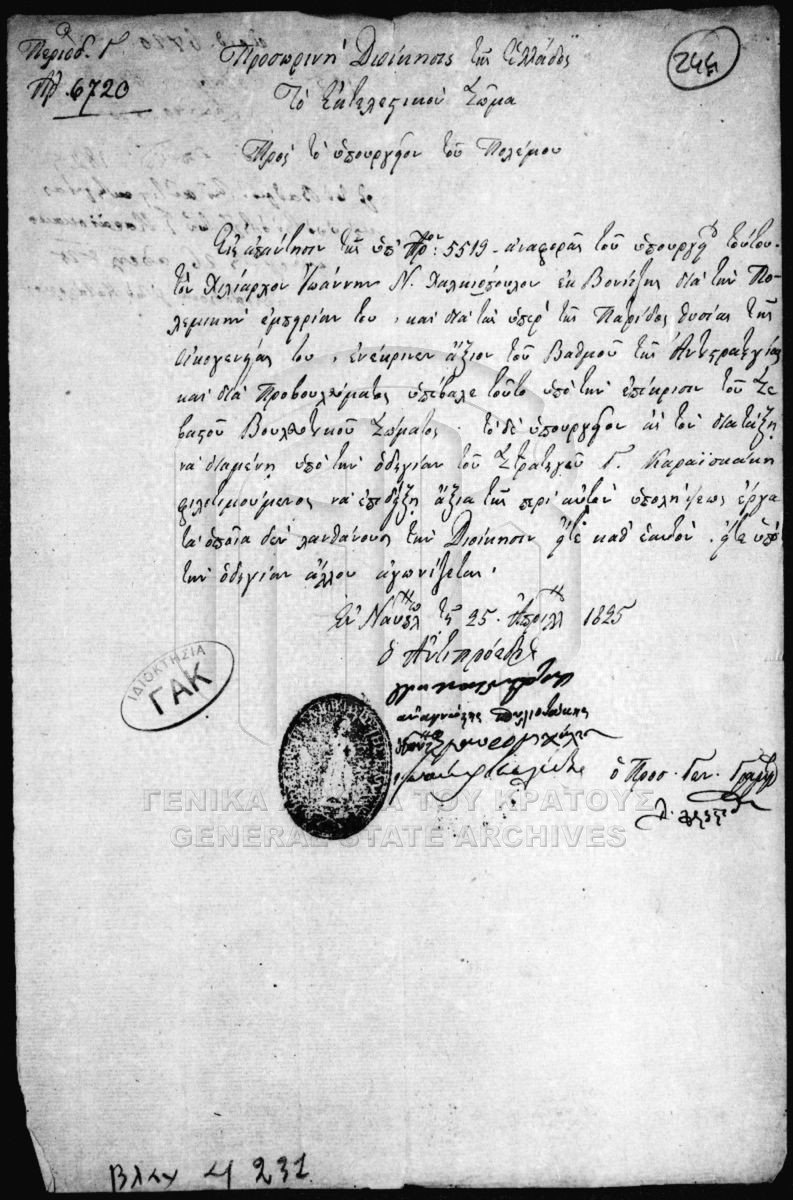 Περίοδ. Γ
Ἀρ. 6720
Προσωρινὴ Διοίκησις τῆς Ἑλλάδος
244
Τὸ Ἐκτελεστικὸν Σῶμα
Πρὸς τὸ ὑπουργεῖον τοῦ Πολέμου
Εἰς ἀπάντησιν τῆς ὑπ' Ἀρ: 5519 ἀναφορᾶς τοῦ ὑπουργείου τούτου.
τὸν Χιλίαρχον Ἰωάννην Ν. Χαλκιόπουλον ἐκ Βονίτζης διὰ τὴν Πο-
λεμικὴν ἐμπειρίαν του, καὶ διὰ τὰς ὑπὲρ τῆς Πατρίδος θυσίας τῆς
οἰκογενείας του, ἐνέκρινεν ἄξιον τοῦ Βαθμοῦ τῆς Ἀντιστρατηγίας
καὶ διὰ Προβουλεύματος ὑπέβαλε τοῦτο ὑπὸ τὴν ἐπίκρισιν τοῦ Σε-
βαστοῦ Βουλευτικοῦ Σώματος. τὸ δὲ ὑπουργεῖον ἂς τὸν διατάξῃ
νὰ διαμένῃ ὑπὸ τὴν ὁδηγίαν τοῦ Στρατηγοῦ Γ. Καραϊσκάκη
φιλοτιμούμενος νὰ ἐπιδείξῃ ἄξια τῆς περὶ αὐτοῦ ὑπολήψεως ἔργα
τὰ ὁποῖα δὲν λανθάνουσι τὴν Διοίκησιν εἴτε καθ' ἑαυτὸν, εἴτε ὑπὸ
τὴν ὁδηγίαν ἄλλου ἀγωνίζεται.
Ἐν Ναυπλίῳ τῇ 25. Ἀπριλλ 1825
ὁ Ἀντιπρόεδρος
ΙΔΙΟΚΤΗΣΙΑ
ΓΑΚ
ὁ Προσ. Γεν. Γραμμ
ΓΕΝΙΚΑ ΑΡΧΕΙΑ ΤΟΥ ΚΡΑΤΟΥΣ
GENERAL STATE ARCHIVES
231